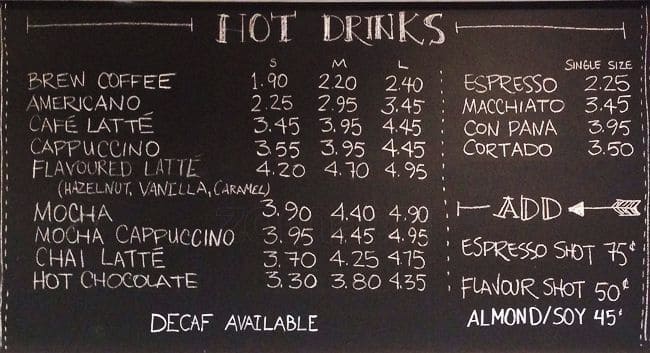 HOT DRINKS
S M L
BREW COFFEE 1.90 2.20 2.40
AMERICANO 2.25 2.95 3.45
CAFÉ LATTÉ 3.45 3.95 4.45
CAPPUCCINO 3.55 3.95 4.45
FLAVOURED LATTÉ 4.20 4.70 4.95
(HAZELNUT, VANILLA, CARAMEL)
MOCHA 3.90 4.40 4.90
MOCHA CAPPUCCINO 3.95 4.45 4.95
CHAI LATTÉ 3.70 4.25 4.75
HOT CHOCOLATE 3.30 3.80 4.35
DECAF AVAILABLE
SINGLE SIZE
ESPRESSO 2.25
MACCHIATO 3.45
CON PANA 3.95
CORTADO 3.50
ADD
ESPRESSO SHOT 75¢
FLAVOUR SHOT 50¢
ALMOND/SOY 45¢